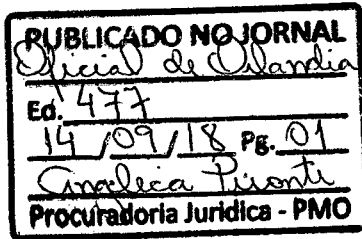 PUBLICADO NO JORNAL
Oficial de Orlandia
Ed. 477
14/09/18 Pg. 01
Angelica
Procuradoria Juridica - PMO